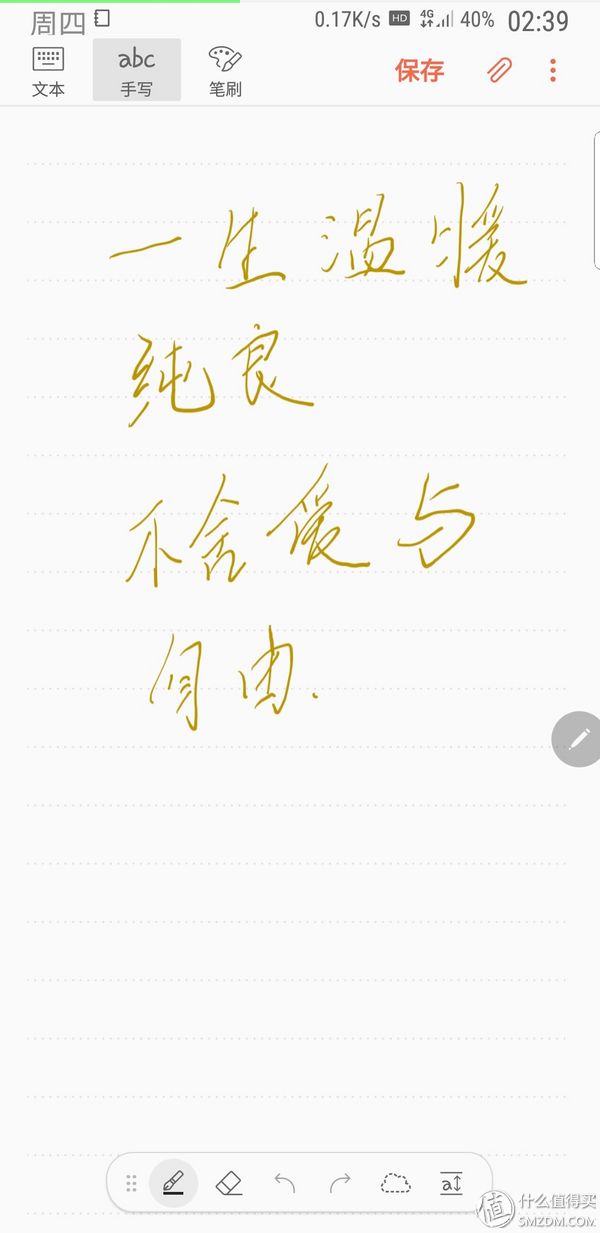 周四 0.17K/s HD 4G 40% 02:39
文本 abc 手写 笔刷 保存
一生温暖
纯良
不舍爱与
自由.
a
值 什么值得买
SMZDM.COM